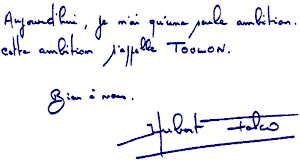 Aujourd'hui, je n'ai qu'une seule ambition.
cette ambition s'appelle TOULON.
Bien à vous.
Hubert Falco